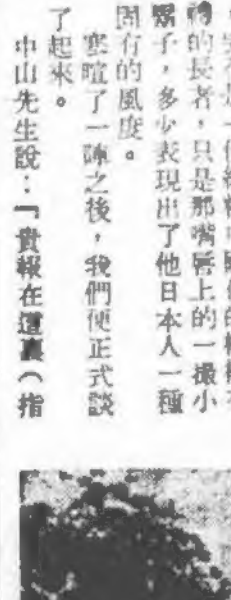 的長者，只是那嘴唇上的一撮小
鬍子，多少表現出了他日本人一種
固有的風度。
寒暄了一陣之後，我們便正式談
了起來。
中山先生說：「貴報在這裏（指